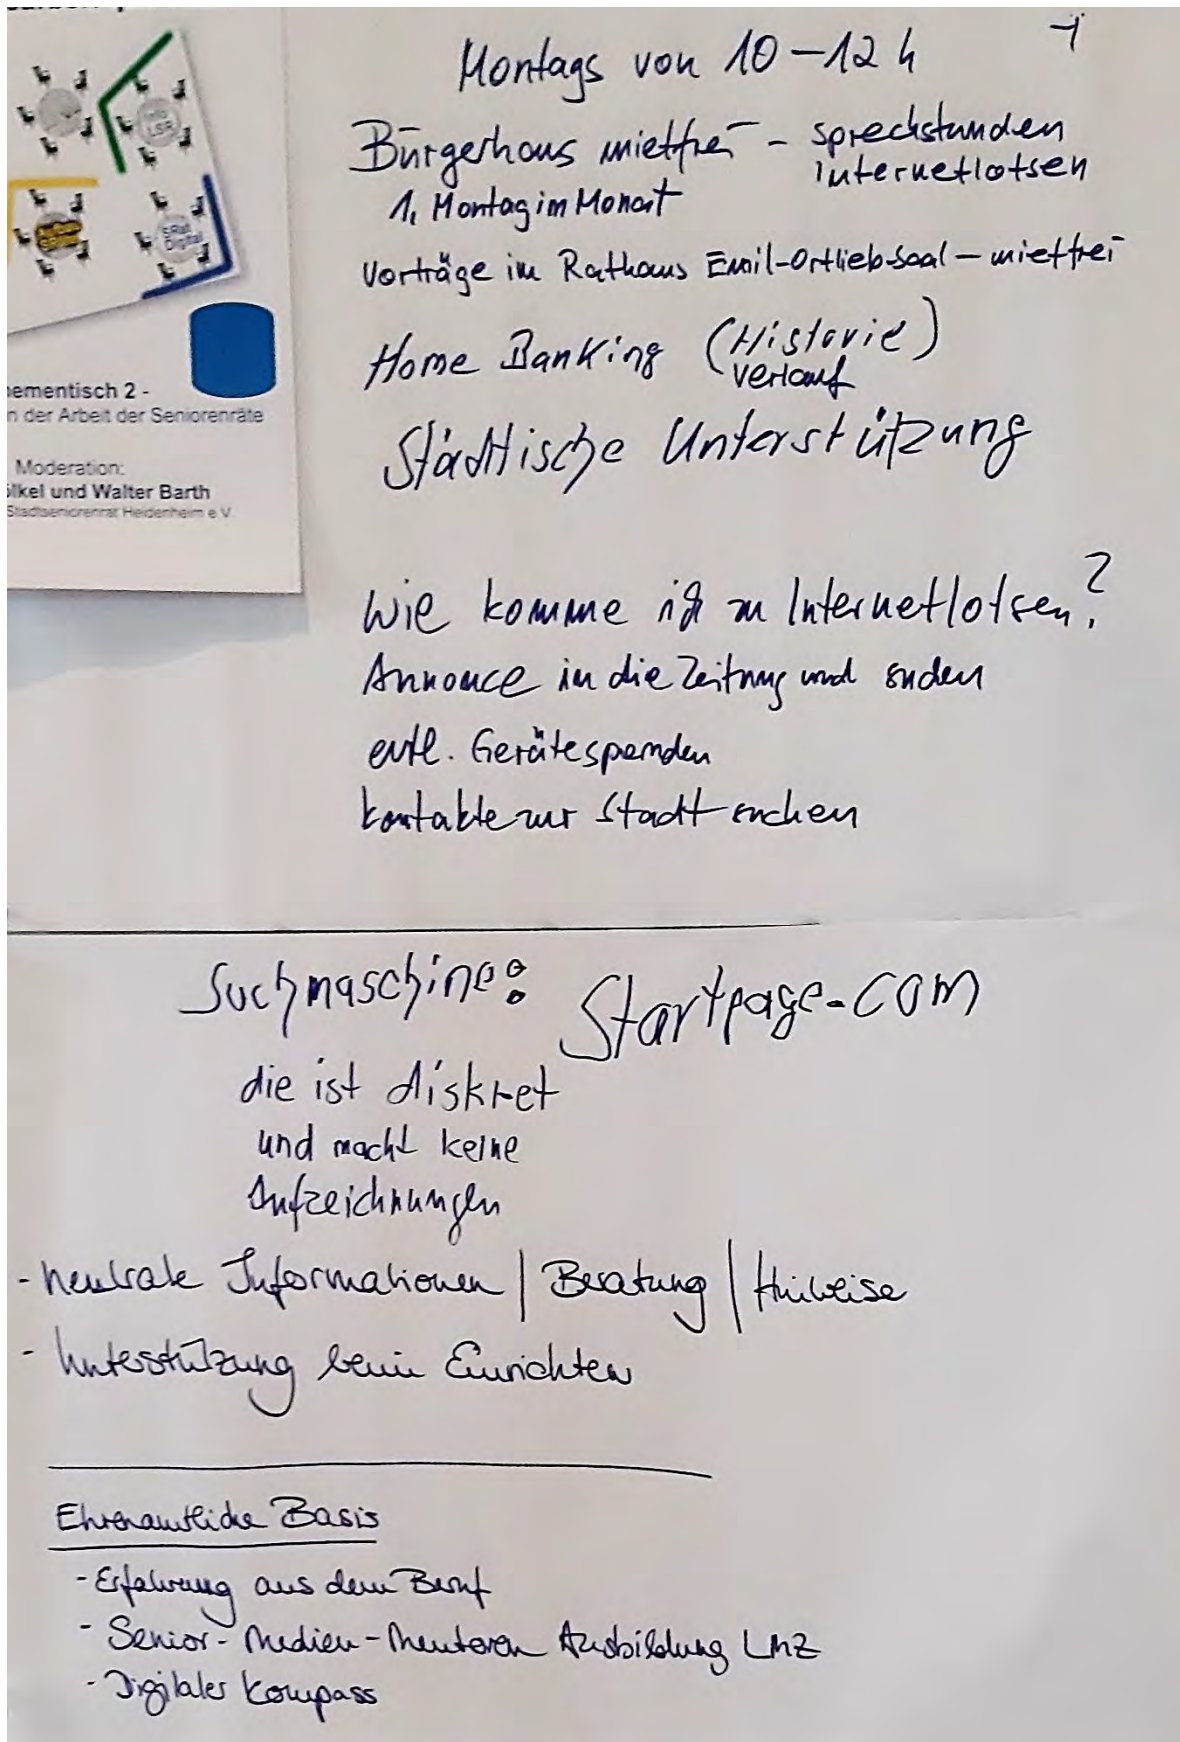 Info
LSR
SRat
Digital
ementisch 2 -
n der Arbeit der Seniorenräte
Moderation:
lkel und Walter Barth
Stadtseniorenrat Heidenheim e.V.
Montags von 10-12 h
Bürgerhaus mietfrei - sprechstunden
Internetlotsen
1. Montag im Monat
Vorträge im Rathaus Emil-Ortlieb-Saal - mietfrei
Home Banking (Historie)
Verlauf
Städtische Unterstützung
Wie komme ich zu Internetlotsen?
Annonce in die Zeitung und suchen
evtl. Gerätespenden
Kontakte zur Stadt suchen
Suchmaschine: Startpage.com
die ist diskret
und macht keine
Aufzeichnungen
- neutrale Informationen | Beratung | Hinweise
- Unterstützung beim Einrichten
Ehrenamtliche Basis
- Erfahrung aus dem Beruf
- Senior-Medien-Mentoren Ausbildung LMZ
- Digitaler Kompass